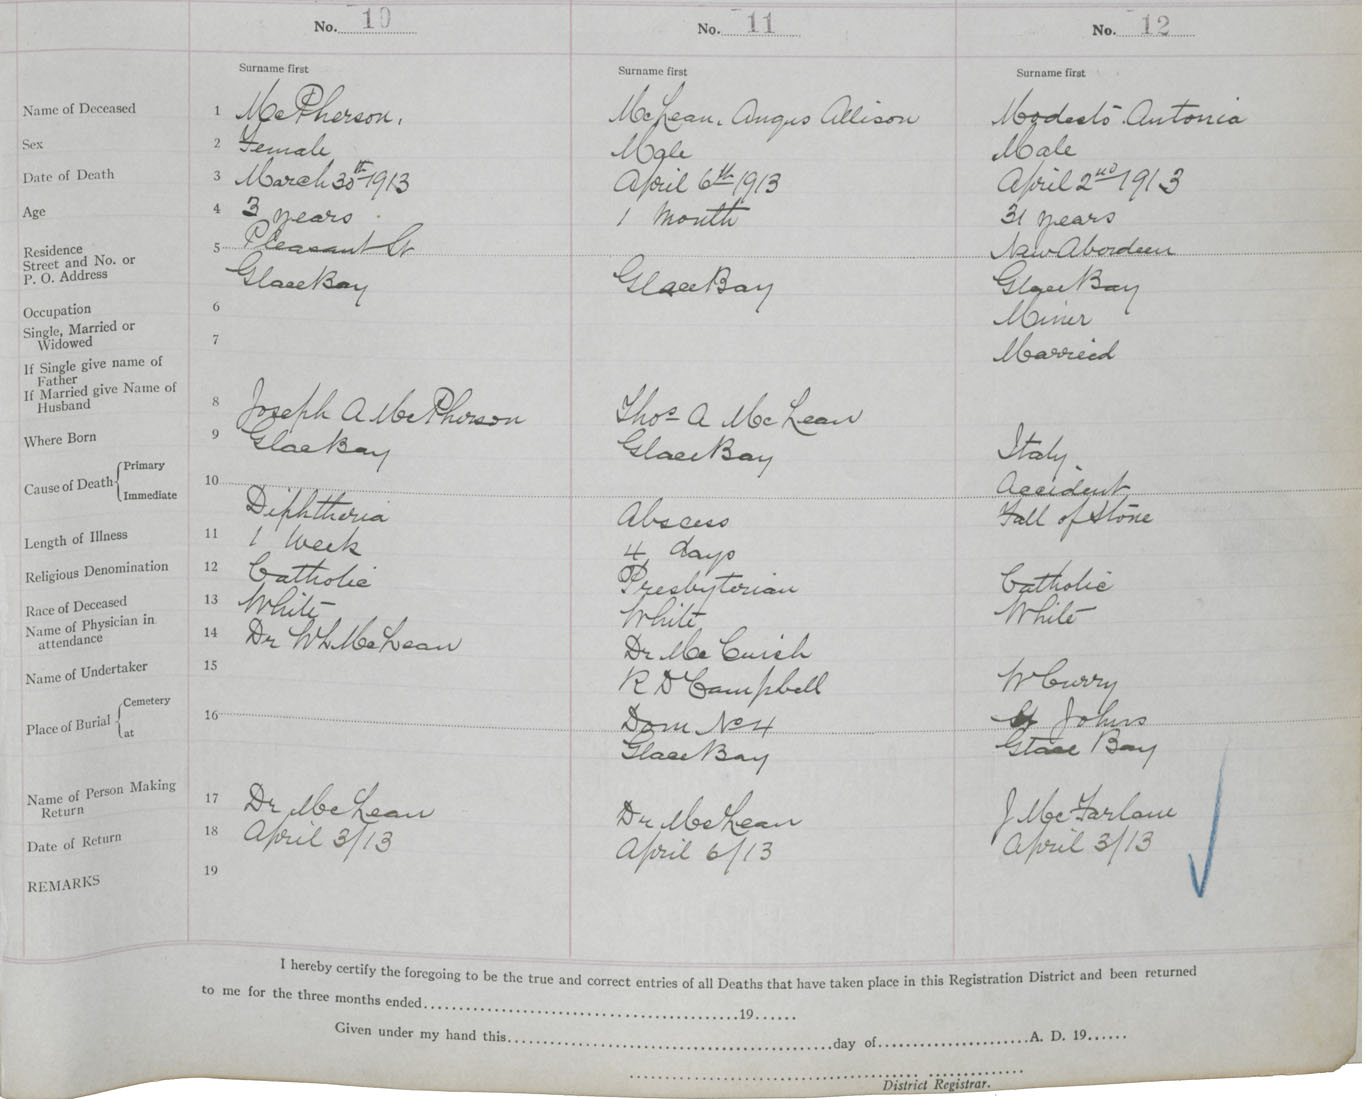 No. 10 No. 11 No. 12
Surname first Surname first Surname first
Name of Deceased 1 McPherson, McLean, Angus Allison Modesto Antonia
Sex 2 Female Male Male
Date of Death 3 March 30th 1913 April 6th 1913 April 2nd 1913
Age 4 3 years 1 Month 31 years
Residence 5 Pleasant St New Aberdeen
Street and No. or
P. O. Address Glace Bay Glace Bay Glace Bay
Occupation 6 Miner
Single, Married or
Widowed 7 Married
If Single give name of
Father
If Married give Name of
Husband 8 Joseph A McPherson Thos A McLean
Where Born 9 Glace Bay Glace Bay Italy
Cause of Death Primary 10 Accident
Immediate Diphtheria Abscess Fall of Stone
Length of Illness 11 1 Week 4 days
Religious Denomination 12 Catholic Presbyterian Catholic
Race of Deceased 13 White White White
Name of Physician in
attendance 14 Dr WL McLean Dr McCuish
Name of Undertaker 15 R D Campbell W Curry
Place of Burial Cemetery 16 Dom No 4 St Johns
at Glace Bay Glace Bay
Name of Person Making
Return 17 Dr McLean Dr McLean J McFarlane
Date of Return 18 April 3/13 April 6/13 April 3/13
REMARKS 19
I hereby certify the foregoing to be the true and correct entries of all Deaths that have taken place in this Registration District and been returned
to me for the three months ended........................................19......
Given under my hand this........................................day of....................A. D. 19......
District Registrar.